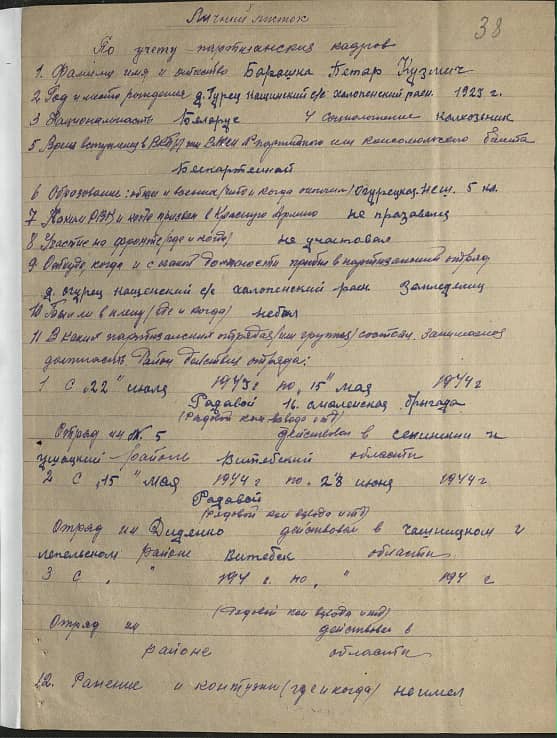 38
Личний листок
По учету партизанских кадров
1. Фамилия имя и отчество Барашка Петар Кузмич
2 Год и место рождения д. Гурец нащинский с/с холопенский раен. 1925 г.
3 Национальность Беларус 4 Соцположение колхозник
5 Время вступления в ВКП/б/ или ВЛКСМ № партийного или комсомольского билета
Беспартейный
6 Образование: общее и военное/что и когда окончил/ Огурецкая Н.С.Ш. 5 кл.
7 Каким РВК и когда призван в Красную Армию не празавался
8 Участие на фронте/где и когда/ не участвовал
9 Откуда, когда и с какой должности прибыл в партизанский отряд
д. огурец нащенский с/с халопенский раен Земледелиц
10 Был ли в плену/где и когда/ небыл
11 В каких партизанских отрядах/или группах/состоял. Занимаемая
должность Район действия отряда:
1 С „22" июля 1943 г по „15" мая 1944 г
Радавой 16. смаленская бригада
(Рядовой ком взвода итд)
Отряд им № 5 действовал в сенненским и
районе Витебский области
2 С „15" мая 1944 г по „28 июня 1944 г.
Радавой
(Рядовой ком взвода итд)
Отряд им Диденко действовал в чашницком и
лепельском районе Витебск области
3 С „ " 194 г. по „ " 194 г
(Рядовой ком взвода итд)
Отряд им действовал в
районе области
12. Ранение и контузии/где и когда/ не имел